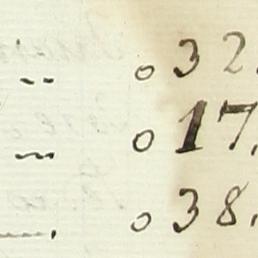 „ 0 32.
„ 0 17.
0 38.